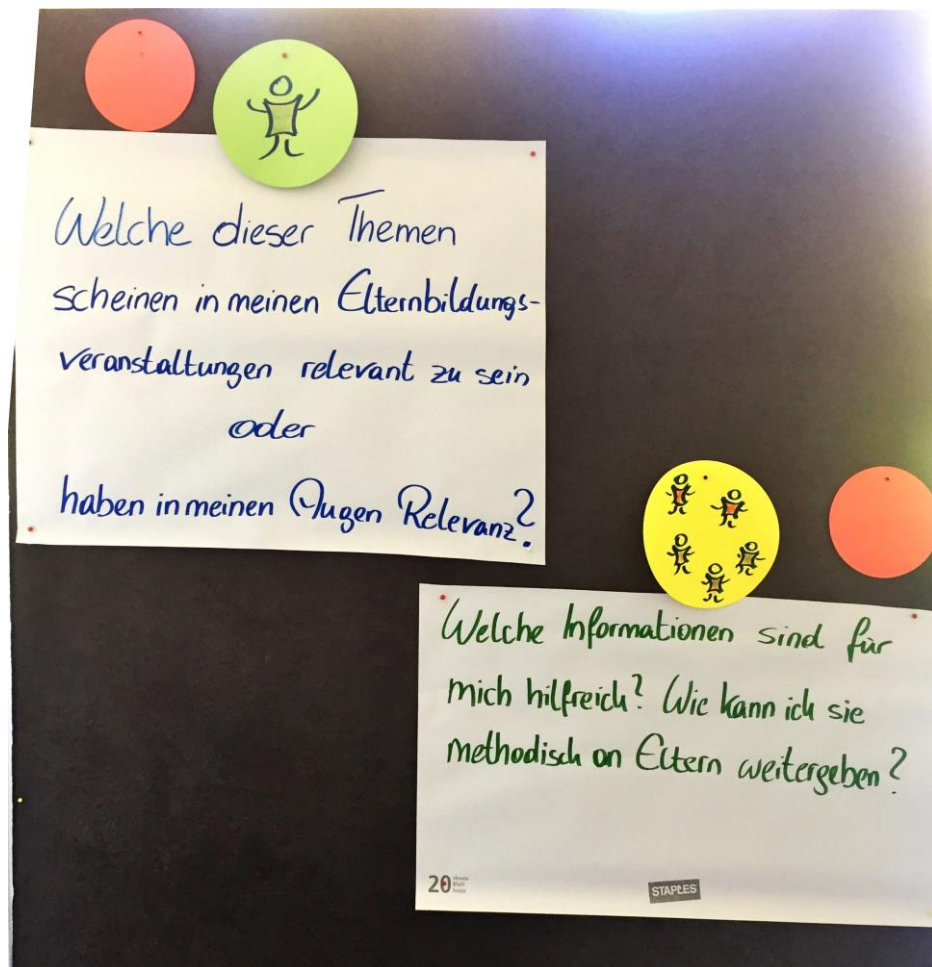 Welche dieser Themen
scheinen in meinen Elternbildungs-
veranstaltungen relevant zu sein
oder
haben in meinen Augen Relevanz?
Welche Informationen sind für
mich hilfreich? Wie kann ich sie
methodisch an Eltern weitergeben?
20
STAPLES